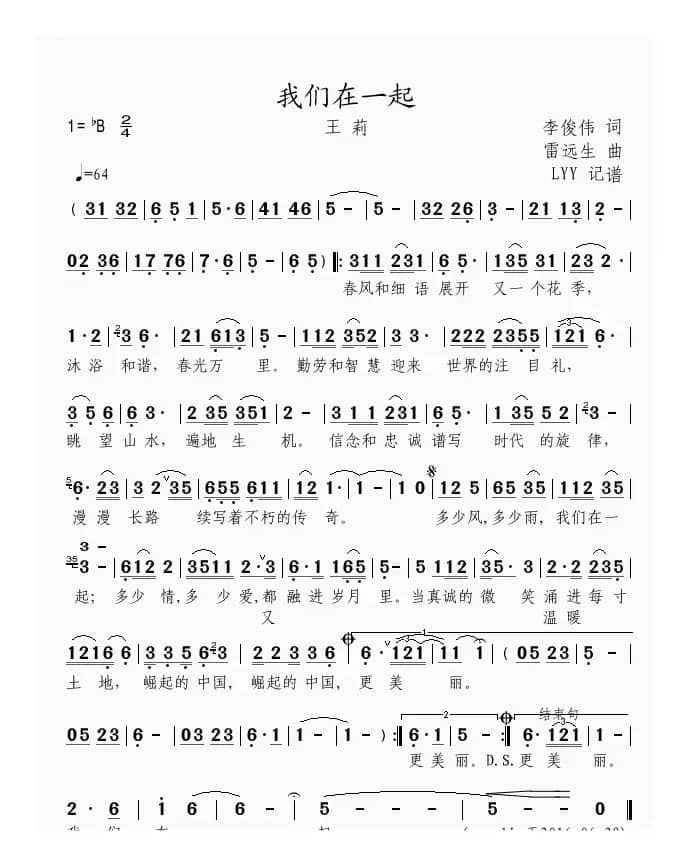 我们在一起
1= ♭B 2/4
王 莉
李俊伟 词
雷远生 曲
♩=64
LYY 记谱
( 31 32 | 6 5 1 | 5·6 | 41 46 | 5 - | 5 - | 32 26 | 3 - | 21 13 | 2 - |
02 36 | 17 76 | 7·6 | 5 - | 65 ) ‖: 311 231 | 6 5· | 135 31 | 23 2· |
春风和细 语 展开 又一 个花 季，
1·2 | 3 6· | 21 613 | 5 - | 112 352 | 3 3· | 222 2355 | 121 6· |
沐 浴 和谐， 春光万 里。 勤劳和智 慧 迎来 世界的注 目 礼，
3 5 6 | 6 3· | 2 35 351 | 2 - | 3 1 1 231 | 6 5· | 1 35 5 2 | 3 - |
眺 望 山水， 遍地 生 机。 信念和 忠 诚 谱写 时代 的旋 律，
6· 23 | 3 2 35 | 655 611 | 12 1· | 1 - | 1 0 | 12 5 | 65 35 | 11235 |
漫 漫 长路 续写着不朽的传 奇。 多少风,多少雨，我们在一
3 -
3 - | 612 2 | 3511 2·3 | 6·1 165 | 5- | 5 112 | 35· | 2·2 235 |
起； 多少 情,多 少 爱,都 融 进 岁月 里。当真诚的 微 笑 涌 进 每 寸
又 温 暖
1216 6 | 3 35 5 63 | 2 2 3 3 6 | 6· 121 | 11 1 | ( 05 23 | 5 - |
土 地， 崛起的 中国， 崛起的 中国， 更 美 丽。
1
05 23 | 6 - | 03 23 | 6·1 | 1 - | 1 - ) :‖ 6·1 | 5 - :‖ 6· 121 | 1 - |
2
结束句
更 美 丽。D.S.更 美 丽。
2· 6 | 1 6 | 6 6 | 5 - | 5 - | 5 0 ‖